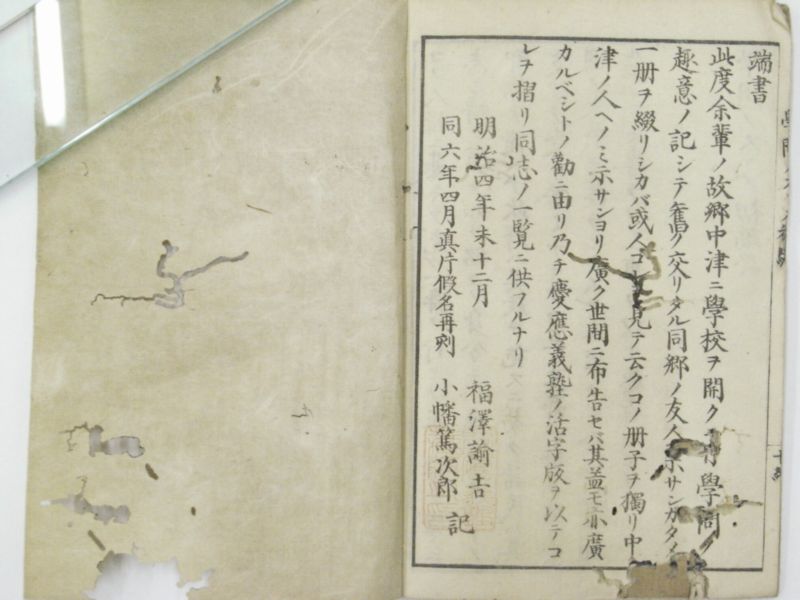 端書
此度余輩ノ故郷中津ニ學校ヲ開クニ付學問ノ
趣意ノ記シテ舊ク交リタル同郷ノ友人示サンガタメ
一册ヲ綴リシカバ或人コレ見テ云クコノ册子ヲ獨リ中
津ノ人ヘノミ示サンヨリ廣ク世間ニ布告セバ其益モ亦廣
カルベシトノ勸ニ由リ乃チ慶應義塾ノ活字版ヲ以テコ
レヲ摺リ同志ノ一覧ニ供フルナリ
明治四年未十二月 福澤諭吉
同六年四月真片假名再刻 小幡篤次郎 記